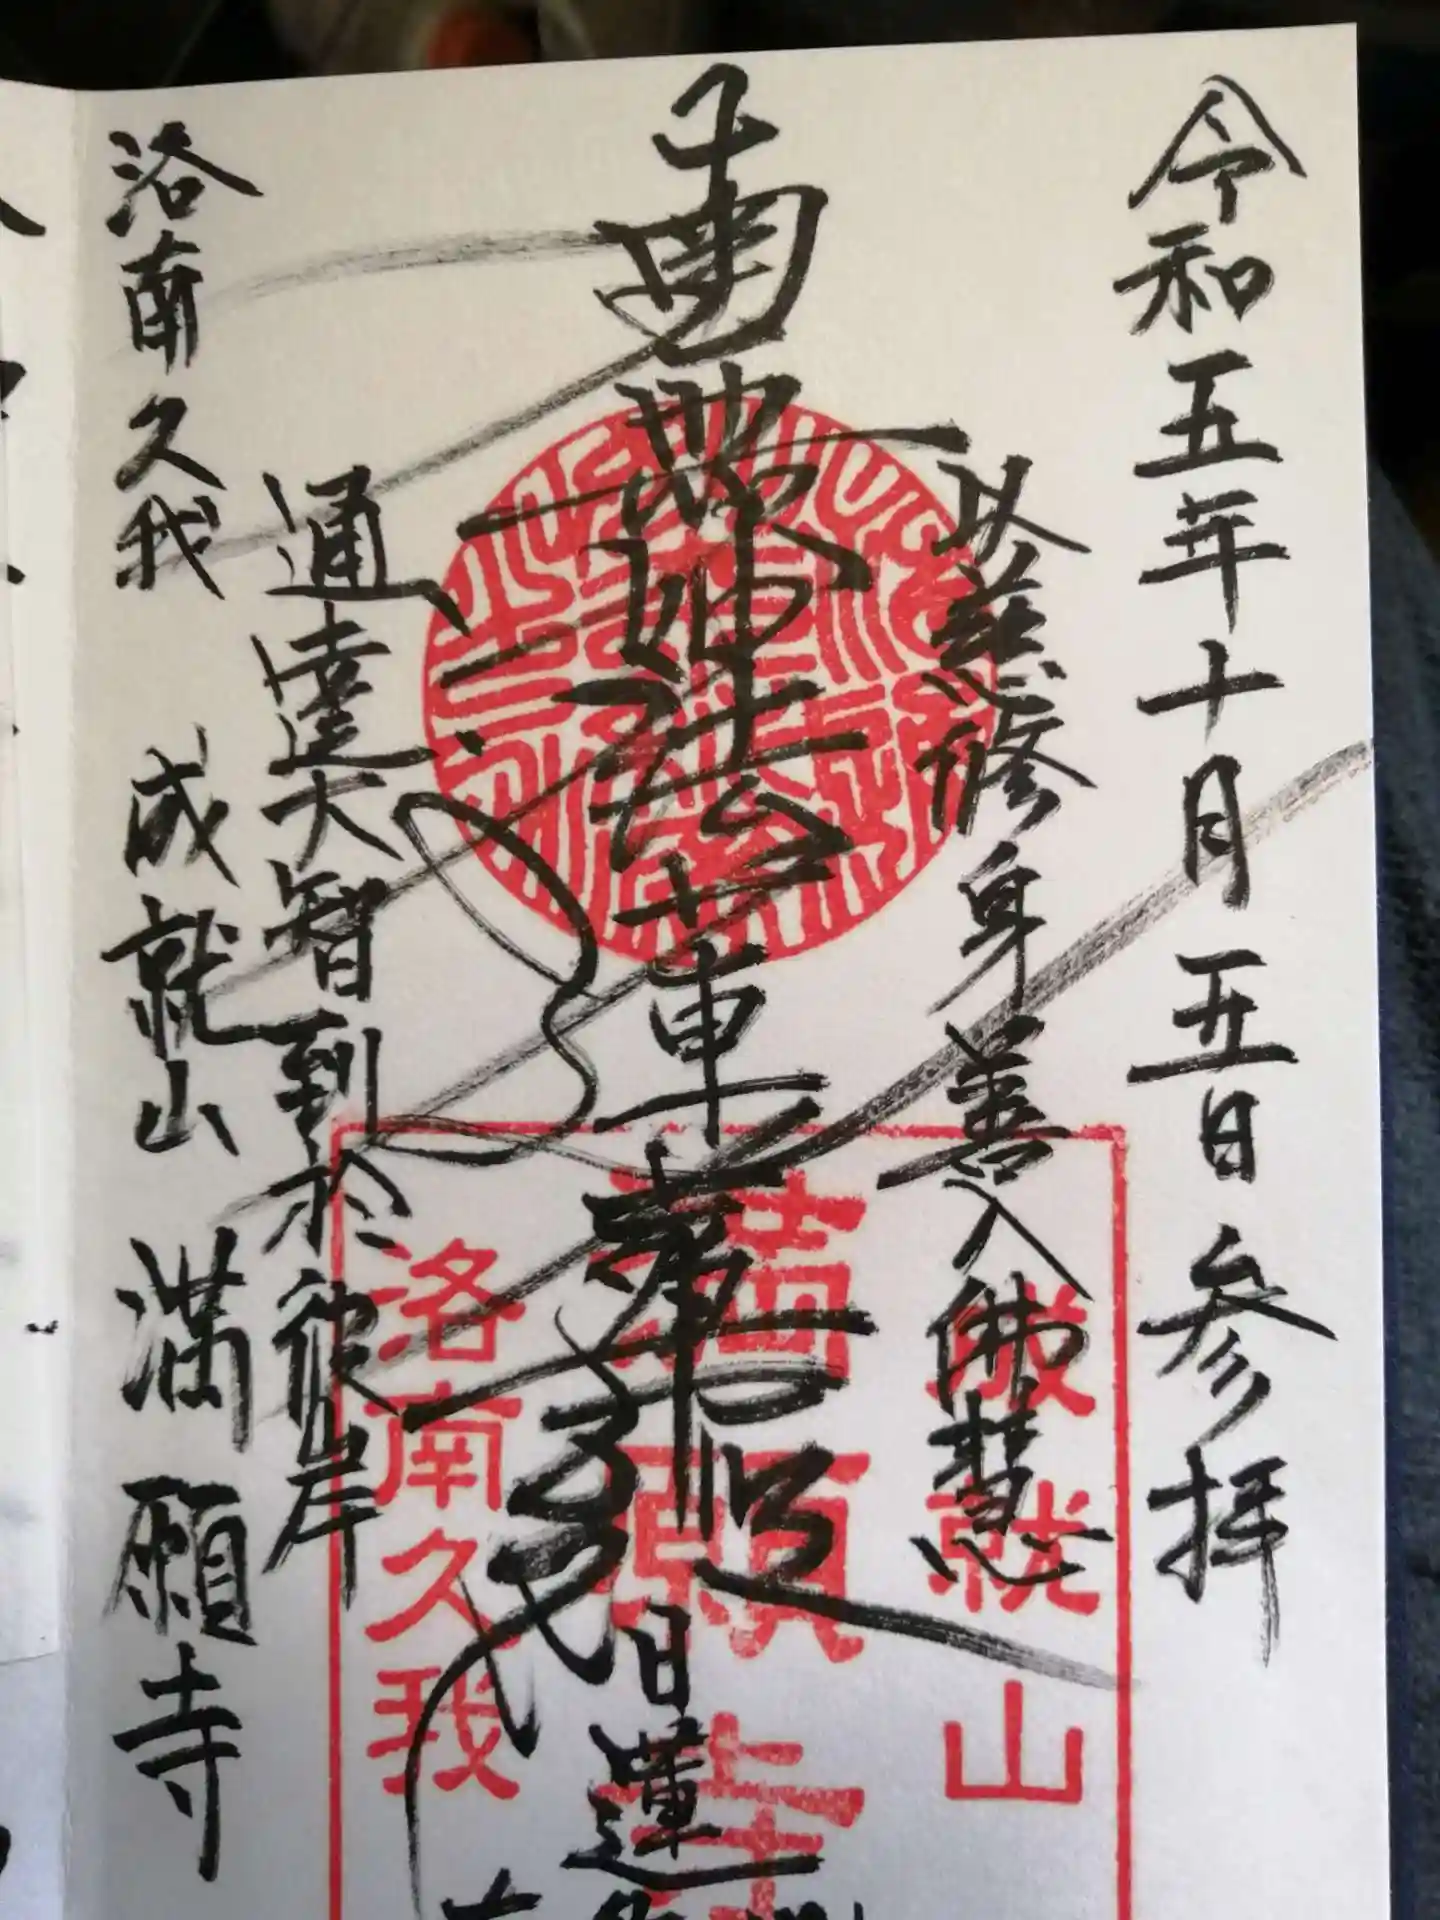 令和五年十月五日 参拝
以慈修身 善入佛慧
南無妙法蓮華経
日蓮
通達大智 到於彼岸
洛南久我 成就山 満願寺
成就山
満願寺
洛南久我